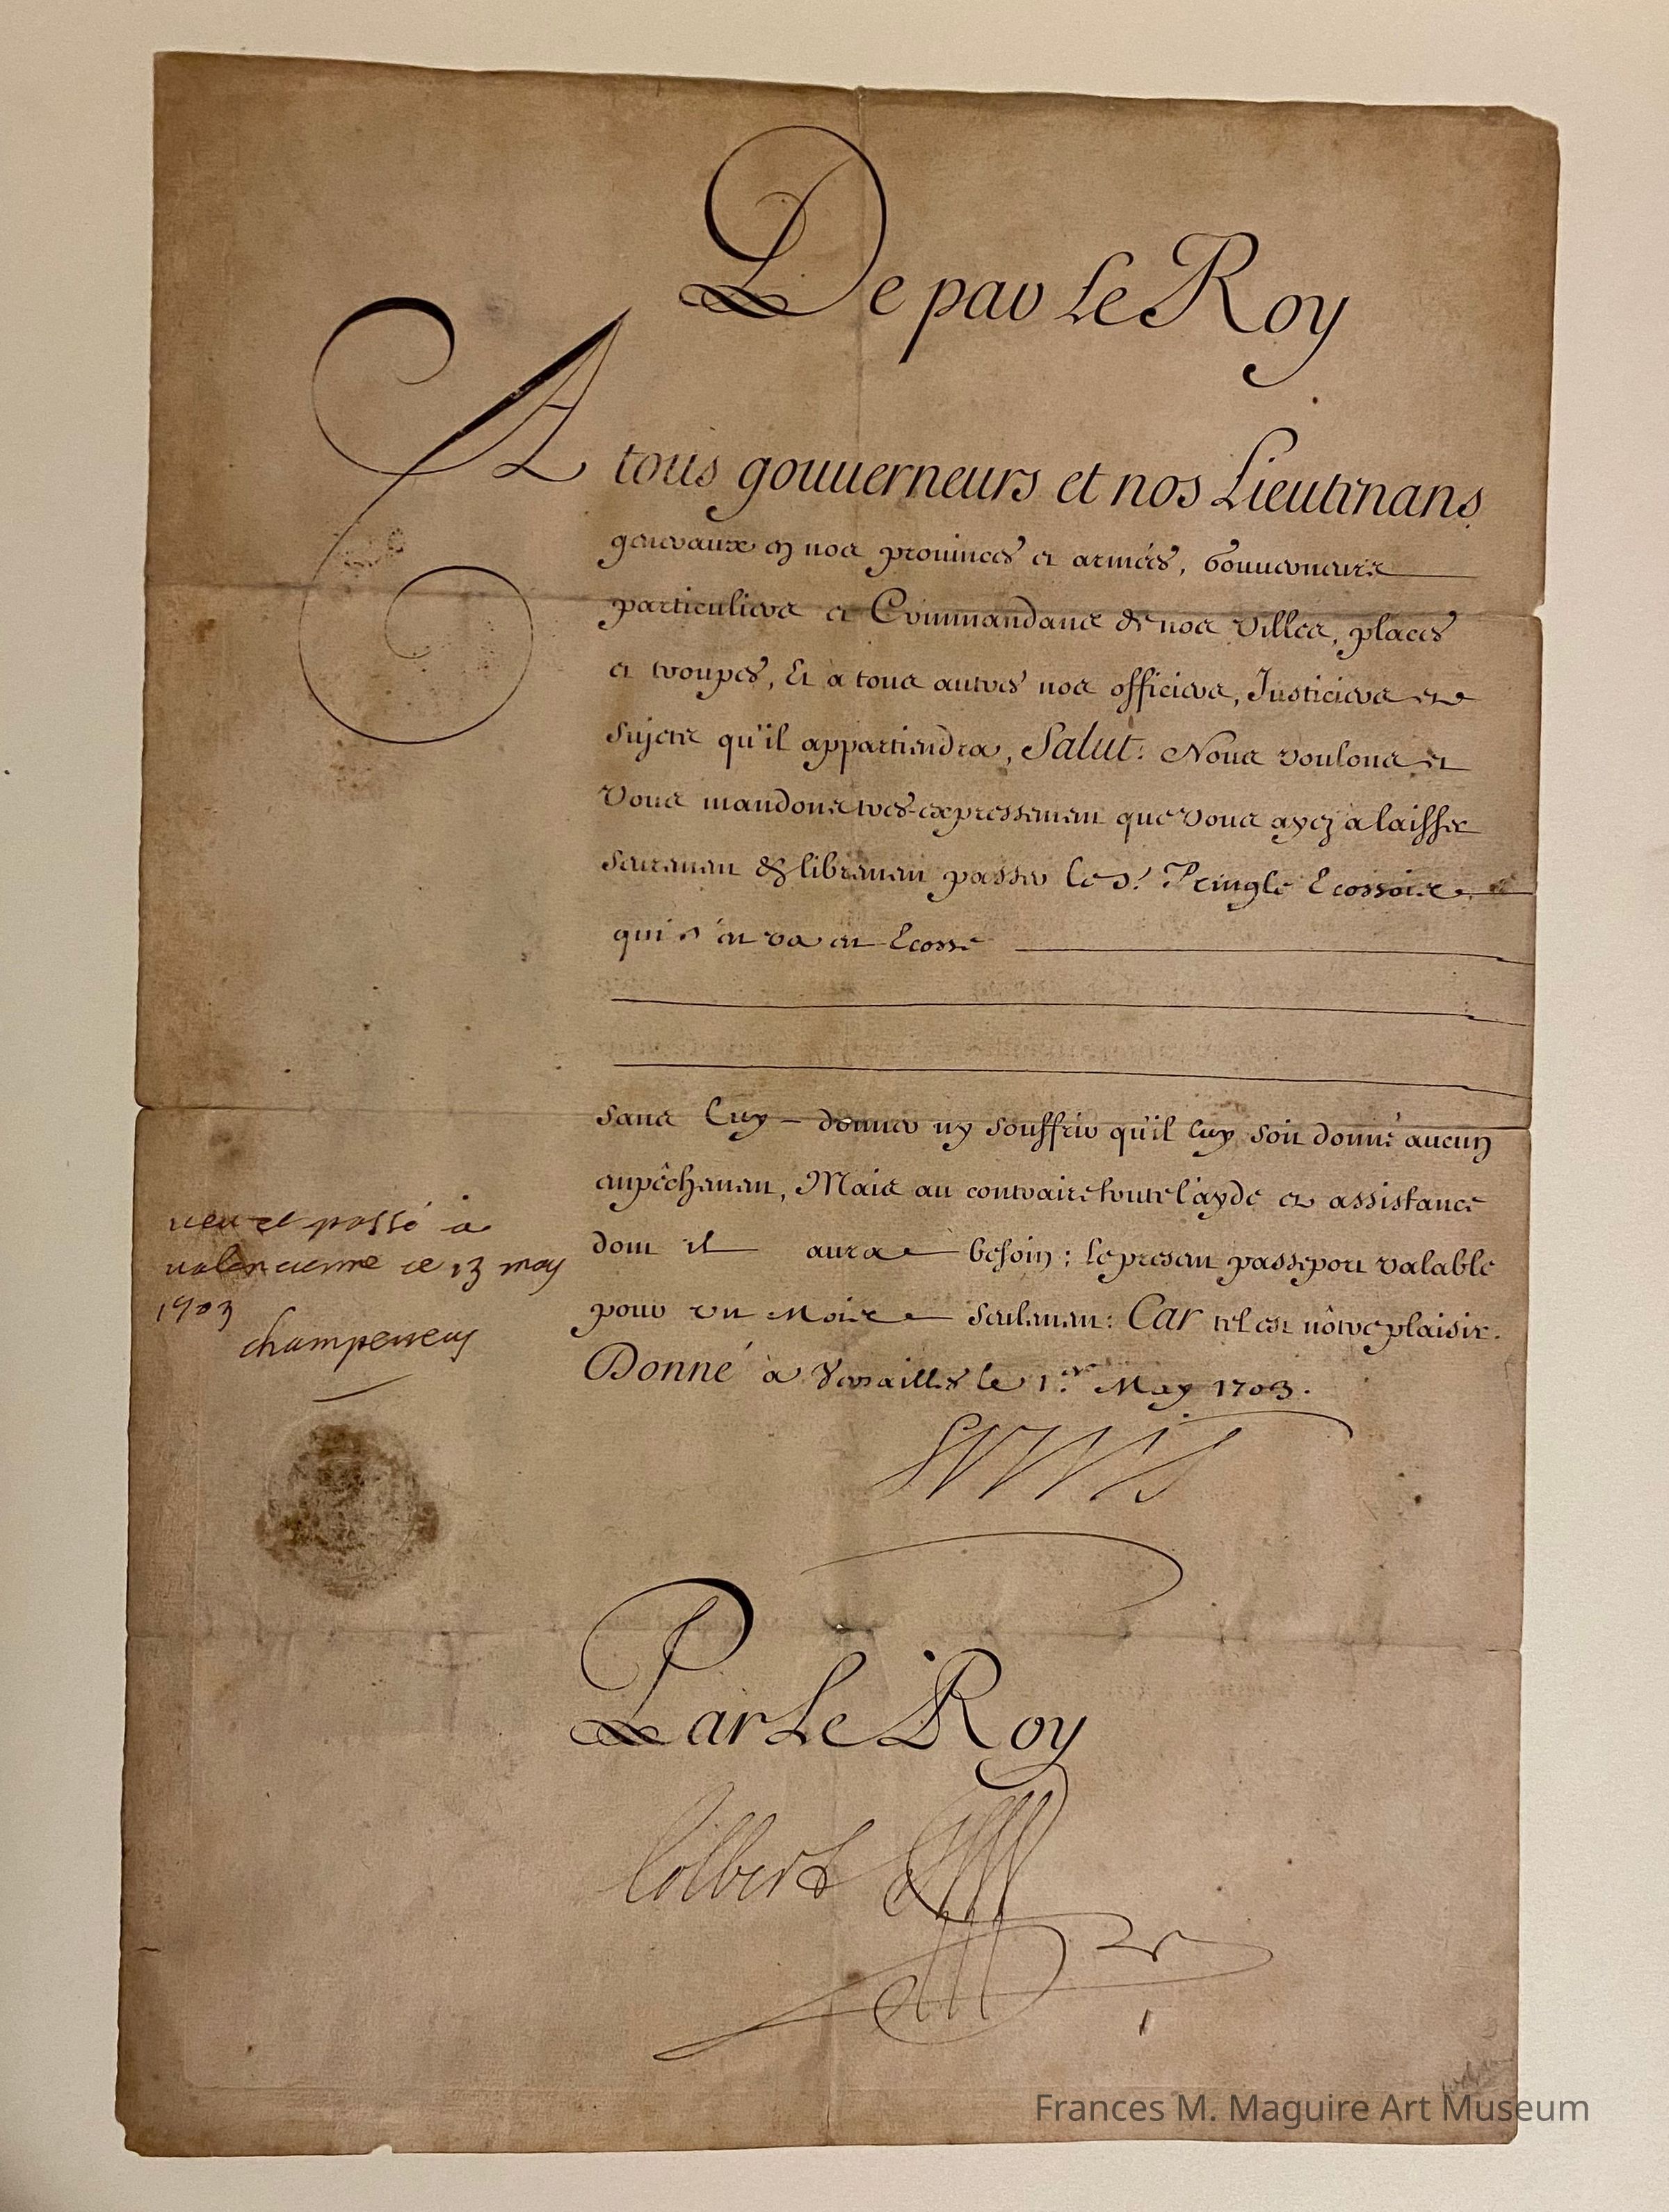 De par Le Roy
A tous gouuerneurs et nos Lieutenans
generaux en nos prouinces et armées, Gouuerneurs
particuliers et Commandans de nos villes, places
et troupes, Et a tous autres nos officiers, Justiciers et
sujets qu'il appartiendra, Salut: Nous voulons et
Vous mandons tres-expressement que vous ayez a laisser
seurement & librement passer le Sr. Pringle Ecossois
qui s'en va en Ecosse
sans luy donner ny souffrir qu'il luy soit donné aucun
empêchement, Mais au contraire toute l'ayde et assistance
dont il aura besoin; le present passeport valable
pour un Mois seulement: Car tel est nôtre plaisir.
Donné à Versailles le 1.er May 1703.
veu et passé à
valencienne ce 13 may
1703
Louis
Par Le Roy
Colbert
Frances M. Maguire Art Museum